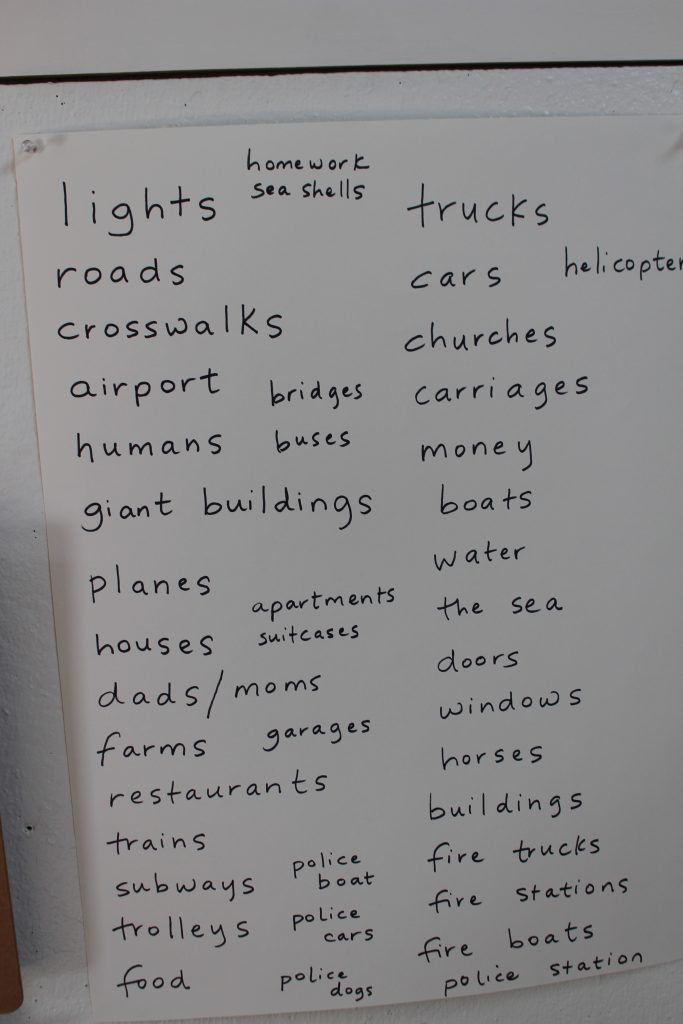 homework
sea shells
lights
roads
crosswalks
airport
bridges
humans
buses
giant buildings
planes
apartments
houses
suitcases
dads/moms
farms
garages
restaurants
trains
subways
police
boat
trolleys
police
cars
food
police
dogs
trucks
cars
helicopter
churches
carriages
money
boats
water
the sea
doors
windows
horses
buildings
fire trucks
fire stations
fire boats
police station